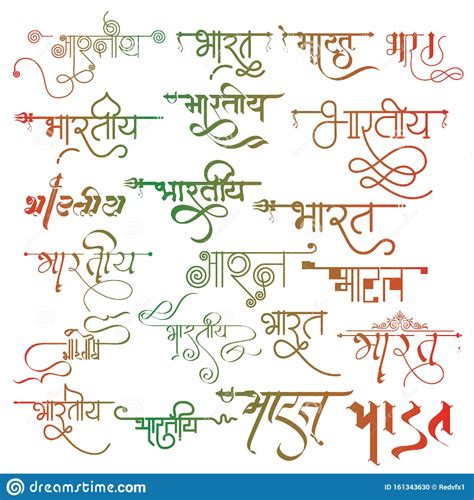 भारतीय भारत भारत भारत
भारतीय भारतीय भारतीय
भारतीय भारतीय भारत
भारतीय भारत भारत
भारतीय भारतीय भारत भारत
भारतीय भारतीय भारत भारत
dreamstime.com ID 161343630 © Redvfx1